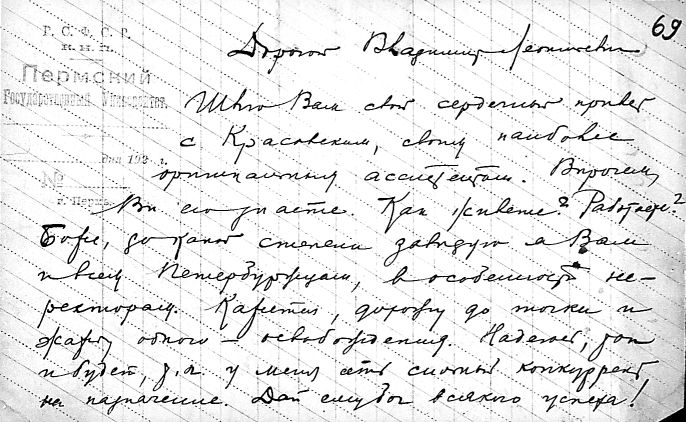 69
Р. С. Ф. С. Р.
Н. К. П.
Пермский
Государственный Университет.
дня 192 г.
№
г. Пермь.
Дорогой Владимир Леонтиевич
Шлю Вам свой сердечный привет
с Красовским, своим наиболее
оригинальным ассистентом. Впрочем,
Вы его знаете. Как живете? Работаете?
Боже, до какой степени завидую я Вам
и всем Петербуржцам, в особенности не-
ректорам. Кажется, дохожу до точки и
жажду одного – освобождения. Надеюсь, так
и будет, т. к. у меня есть сильный конкуррент
на назначение. Дай ему бог всякого успеха!